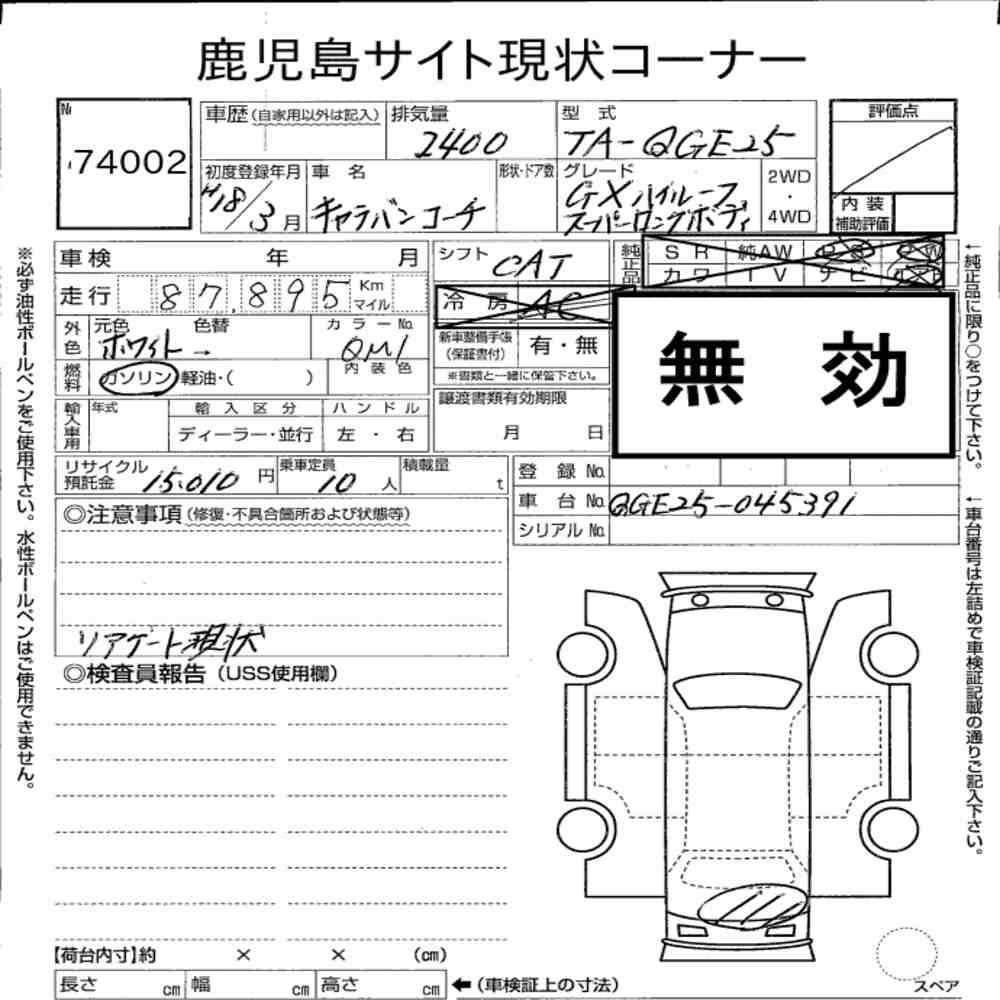 鹿児島サイト現状コーナー
№ 74002
車歴(自家用以外は記入) 排気量 2400 型式 TA-QGE25 評価点
初度登録年月 H18/3月 車名 キャラバンコーチ 形状・ドア数 グレード GXハイルーフ スーパーロングボディ 2WD・4WD
内装補助評価
車検 年 月 シフト CAT 純正品 SR 純AW PS PW
カワ TV ナビ エアB
走行 87,895 Km マイル 冷房 AC
無効
外色 元色 ホワイト → 色替 カラーNo. QM1
新車整備手帳(保証書付) 有・無
※書類と一緒に保管下さい。
燃料 ガソリン 軽油・( ) 内装色
譲渡書類有効期限 月 日
輸入車用 年式 輸入区分 ディーラー・並行 ハンドル 左・右
リサイクル預託金 15.010円 乗車定員 10人 積載量 t
登録No.
車台No. QGE25-045391
シリアルNo.
◎注意事項(修復・不具合箇所および状態等)
リアゲート現状
◎検査員報告(USS使用欄)
【荷台内寸】約 × × (cm)
長さ cm 幅 cm 高さ cm ←(車検証上の寸法)
スペア
※必ず油性ボールペンをご使用下さい。水性ボールペンはご使用できません。
←純正品に限り○をつけて下さい。
←車台番号は左詰めで車検証記載の通りご記入下さい。